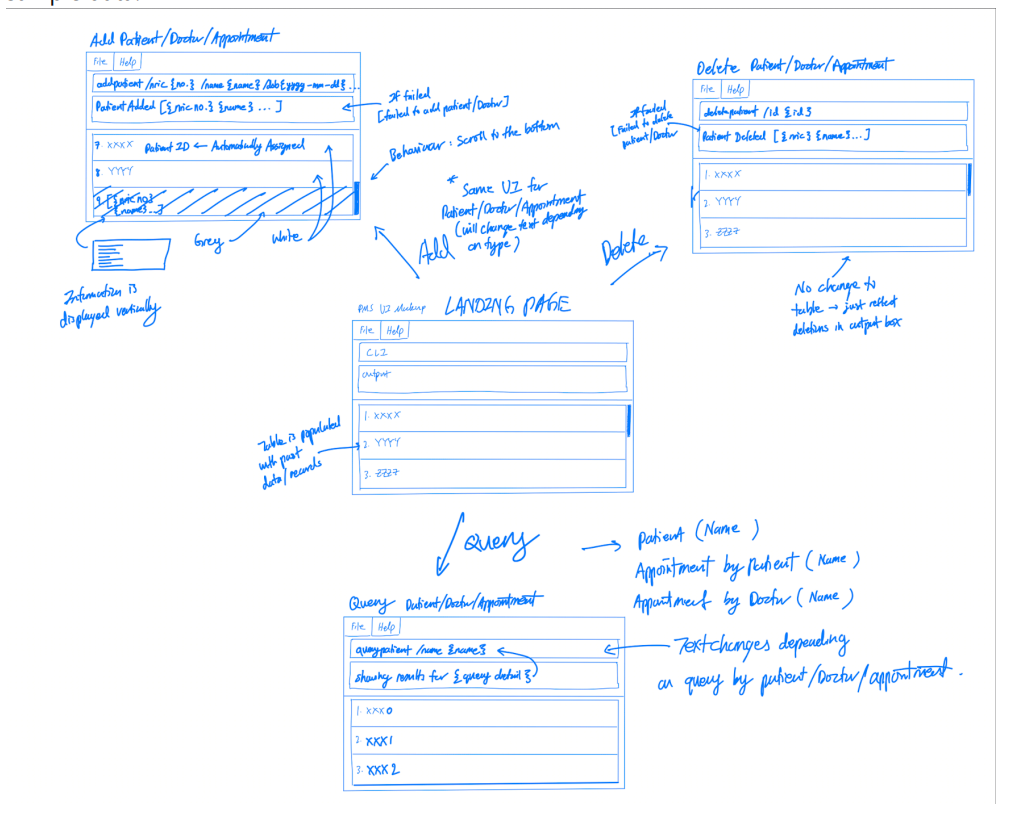 Add Patient/Doctor/Appointment
File Help
addpatient /nric {no.} /name {name} /dob{yyyy-mm-dd} ...
Patient Added [{nric no.} {name} ... ]
If failed
[failed to add patient/Doctor]
7. XXXX Patient ID ← Automatically Assigned
8. YYYY
9. [{nric no}
{name}...]
Behaviour: Scroll to the bottom
Grey
White
Information is
displayed vertically
* Same UI for
Patient/Doctor/Appointment
(will change text depending
on type)
Add
Delete
Delete Patient/Doctor/Appointment
File Help
deletepatient /id {id}
Patient Deleted [{nric} {name}...]
If failed
[Failed to delete
patient/Doctor
1. XXXX
2. YYYY
3. ZZZZ
No change to
table → just reflect
deletions in output box
PMS UI Mockup LANDING PAGE
File Help
CLI
output
1. XXXX
2. YYYY
3. ZZZZ
Table is populated
with past
data/records
Query
Patient (Name)
Appointment by Patient (Name)
Appointment by Doctor (Name)
Query Patient/Doctor/Appointment
File Help
querypatient /name {name}
showing results for {query detail}
1. XXX0
2. XXX1
3. XXX2
Text changes depending
on query by patient/Doctor/appointment.